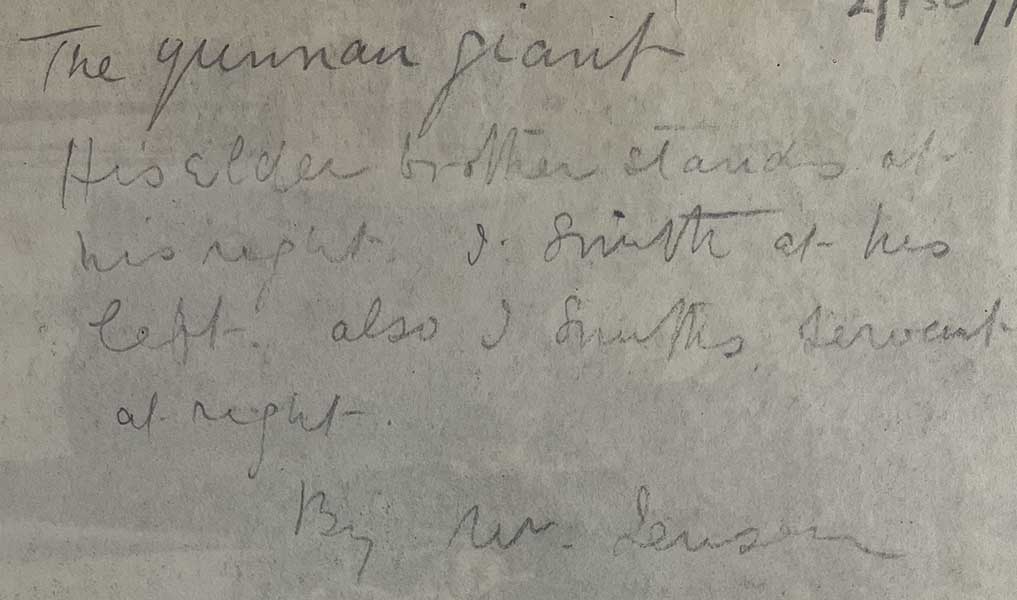 The yunnan giant
His Elder brother stands at
his right. J. Smith at his
left. also J Smiths servant
at right.
By Mr. Jensen